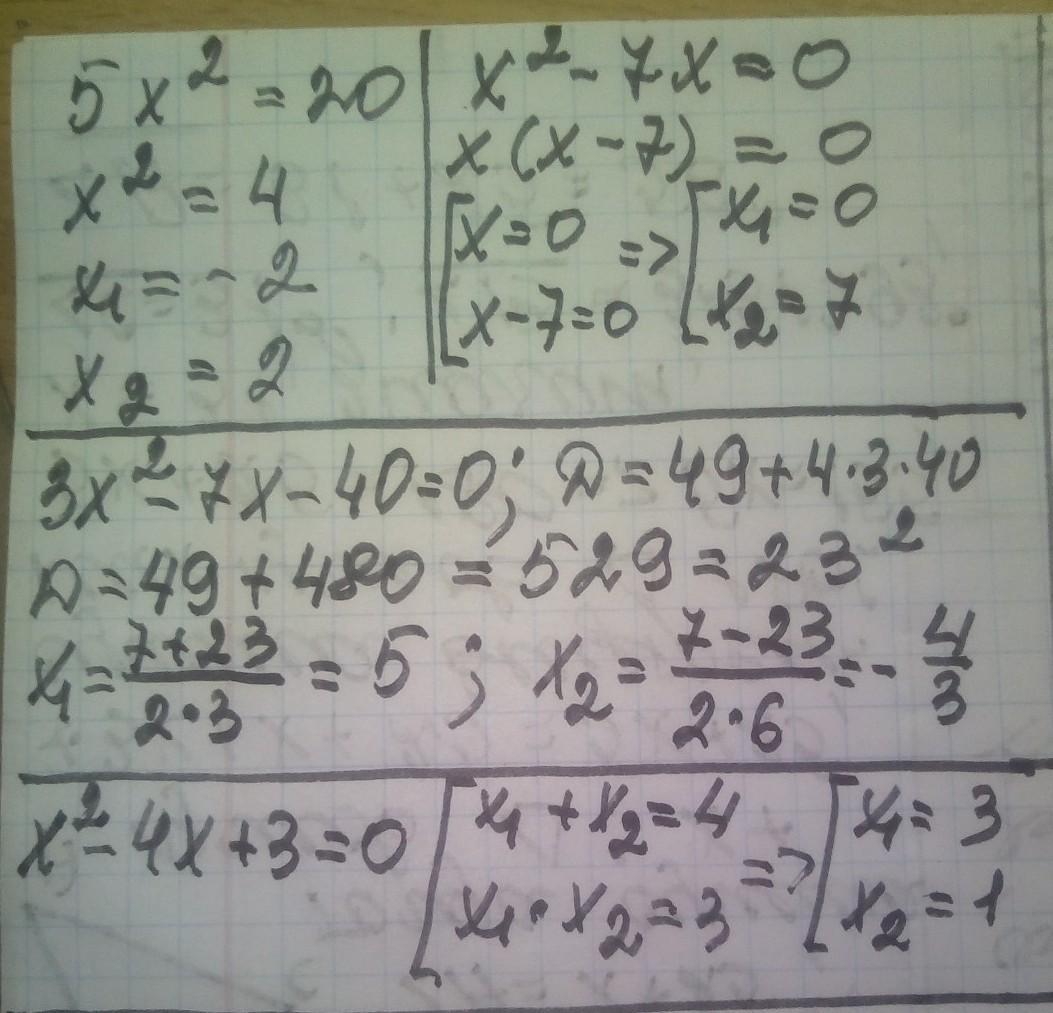 5x² = 20
x² = 4
x₁ = - 2
x₂ = 2
x² - 7x = 0
x(x - 7) = 0
[x = 0 => [x₁ = 0
[x - 7 = 0 [x₂ = 7
3x² - 7x - 40 = 0; D = 49 + 4·3·40
D = 49 + 480 = 529 = 23²
x₁ = (7+23)/(2·3) = 5; x₂ = (7-23)/(2·6) = - 4/3
x² - 4x + 3 = 0 [x₁ + x₂ = 4 => [x₁ = 3
[x₁ · x₂ = 3 [x₂ = 1